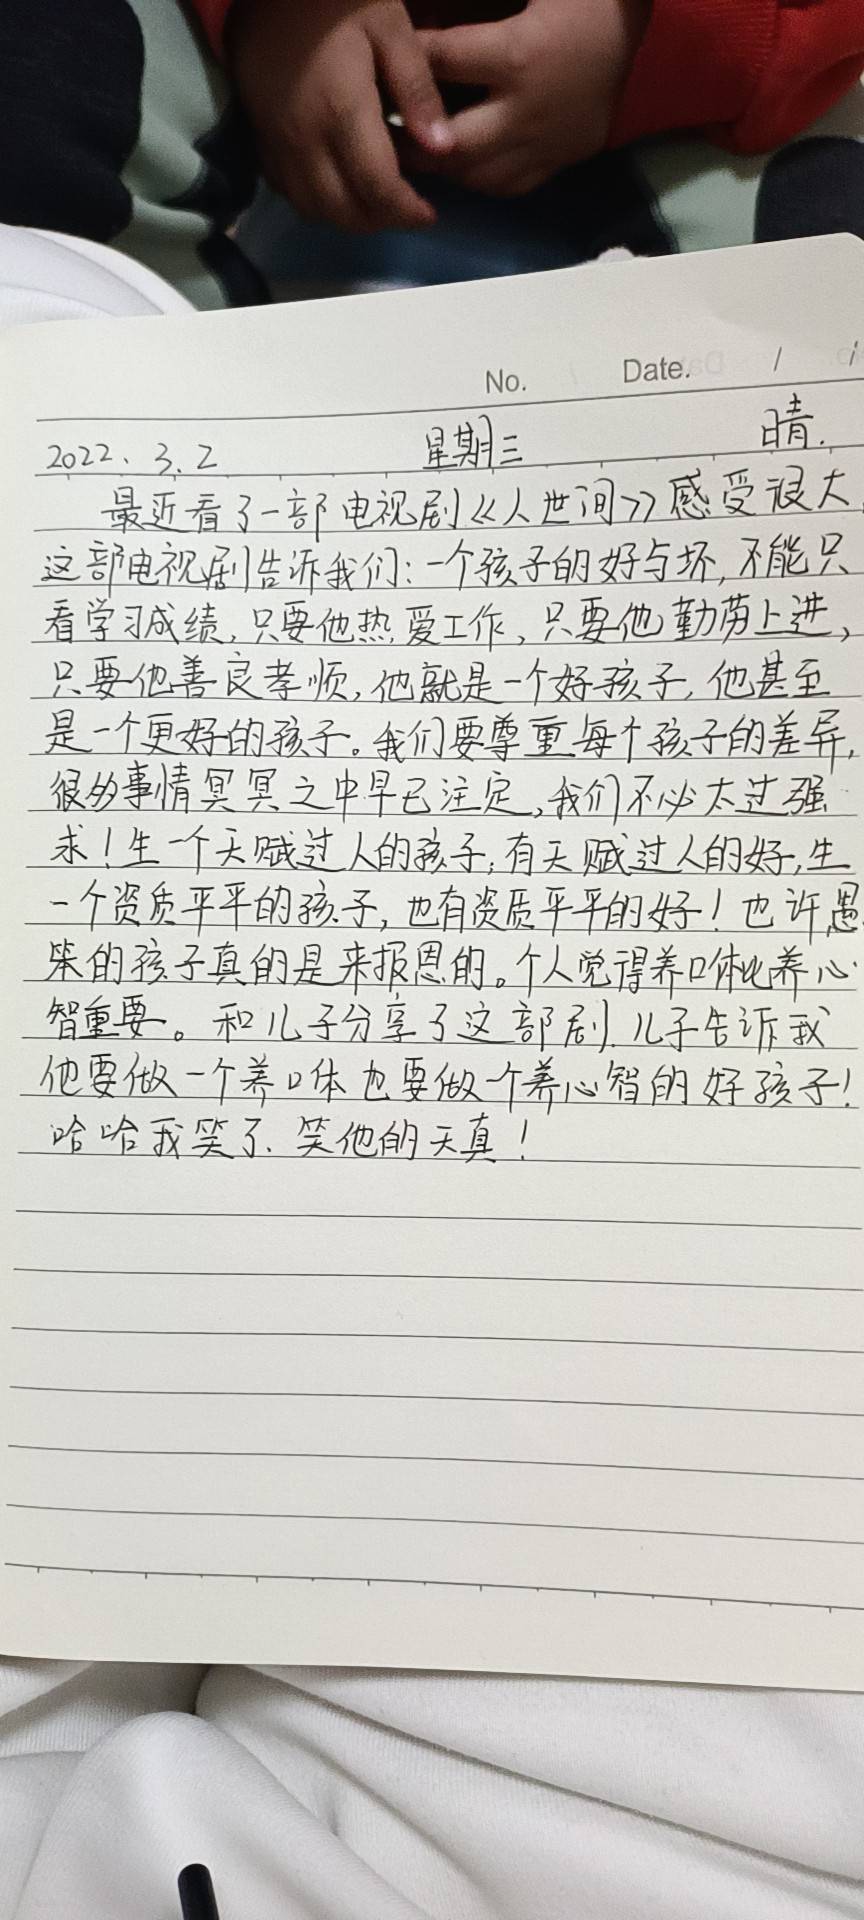 No. / Date. / /
2022. 3. 2 星期三 晴.
最近看了一部电视剧《人世间》感受很大,
这部电视剧告诉我们:一个孩子的好与坏,不能只
看学习成绩,只要他热爱工作,只要他勤劳上进,
只要他善良孝顺,他就是一个好孩子,他甚至
是一个更好的孩子。我们要尊重每个孩子的差异,
很多事情冥冥之中早已注定,我们不必太过强
求!生一个天赋过人的孩子,有天赋过人的好,生
一个资质平平的孩子,也有资质平平的好!也许愚
笨的孩子真的是来报恩的。个人觉得养口体比养心
智重要。和儿子分享了这部剧.儿子告诉我
他要做一个养口体也要做一个养心智的好孩子!
哈哈我笑了.笑他的天真!